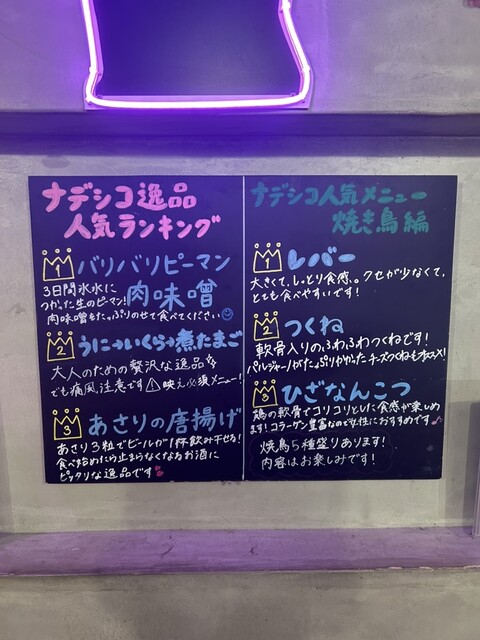 ナデシコ逸品
人気ランキング
1 バリバリピーマン
3日間氷水に
つかった生のピーマン!
肉味噌
肉味噌をたっぷりのせて食べてください
2 うに→いくら→煮たまご
大人のための贅沢な逸品
でも痛風、注意です⚠映え必須メニュー!
3 あさりの唐揚げ
あさり3粒でビールが1杯飲み干せる!
食べ始めたら止まらなくなるお酒に
ピッタリな逸品です
ナデシコ人気メニュー
焼き鳥編
1 レバー
大きくて、しっとり食感。クセが少なくて、
とても食べやすいです!
2 つくね
軟骨入りのふわふわつくねです!
パルジャーノがたっぷりかかったチーズつくねもオススメ!
3 ひざなんこつ
鶏の軟骨でコリコリとした食感が楽しめ
ます!コラーゲン豊富なので女性におすすめです
焼鳥5種盛りあります!
内容はお楽しみです!